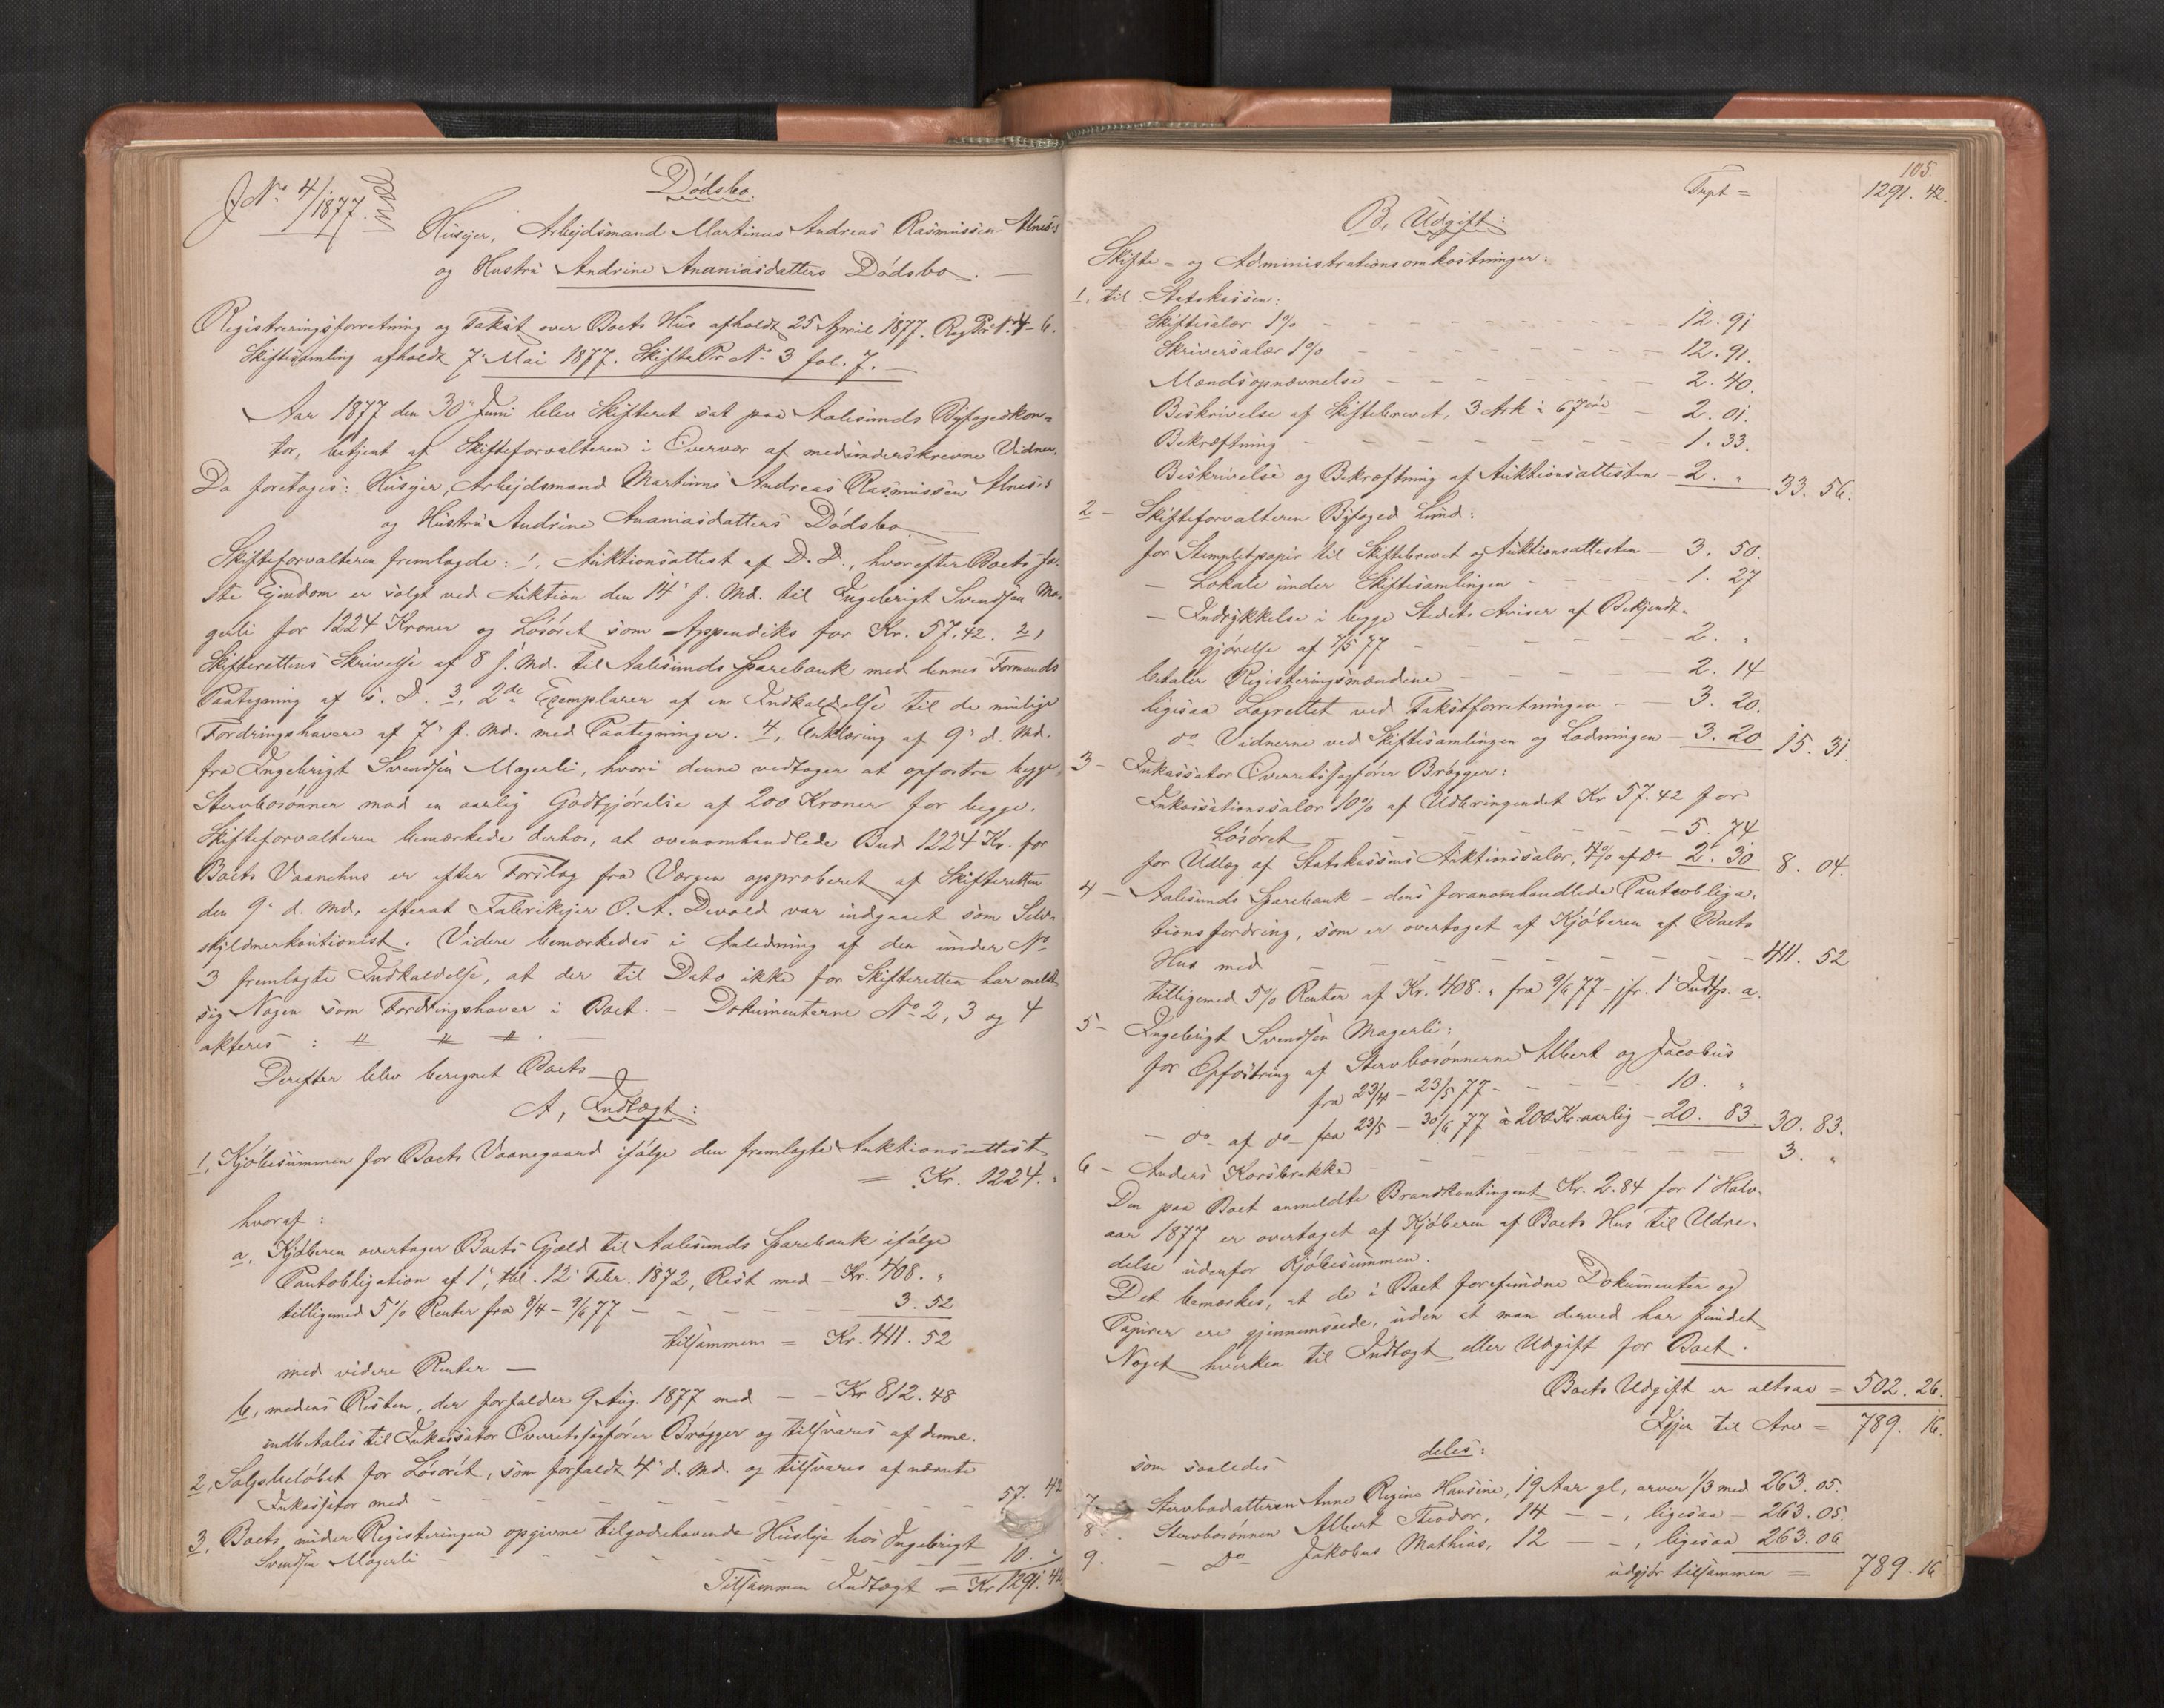 J No 4/1877.
Dödsbo.
Husejer, Arbejdsmand Martinus Andreas Rasmussen Alnes's
og Hustru Andrine Ananiasdatters Dödsbo. —
Registreringsforretning og Takst over Boets Hus afholdt 25 April 1877. Reg Pr. N. 4-6.
Skiftesamling afholdt 7 Mai 1877. SkiftePr No 3 fol. 7. —
Aar 1877 den 30 Juni blev Skifteret sat paa Aalesunds Byfogedkon-
tor, betjent af Skifteforvalteren i Overvær af medunderskrevne Vidner.
Da foretoges: Husejer, Arbejdsmand Martinus Andreas Rasmussen Alnes's
og Hustru Andrine Ananiasdatters Dödsbo
Skifteforvalteren fremlagde: 1, Auktionsattest af D. D., hvorefter Boets fa-
ste Ejendom er solgt ved Auktion den 14 f. Md. til Ingebrigt Svendsen Ma-
gerli for 1224 Kroner og Lösöret som Appendiks for Kr. 57.42. 2,
Skifterettens Skrivelse af 8 f. Md. til Aalesunds Sparebank med dennes Formands
Paategning af s. D. 3, 2de Exemplarer af en Indkaldelse til de mulige
Fordringshavere af 7 f. Md. med Paategninger. 4, Erklæring af 9 d. Md.
fra Ingebrigt Svendsen Magerli, hvori denne vedtager at opfostre begge
Stervbosönner mod en aarlig Godtgjörelse af 200 Kroner for begge.
Skifteforvalteren bemærkede derhos, at ovenomhandlede Bud 1224 Kr. for
Boets Vaanehus er efter Forslag fra Værgen approberet af Skifteretten
den 9 d. Md. efterat Fabrikejer O. A. Devold var indgaaet som Selv-
skyldnerkautionist. Videre bemærkedes i Anledning af den under No
3 fremlagte Indkaldelse, at der til Dato ikke for Skifteretten har meldt
sig Nogen som Fordringshaver i Boet. — Dokumenterne No 2, 3 og 4
akteres: " " " . —
Derefter blev beregnet Boets
A, Indtægt:
1, Kjöbesummen for Boets Vaanegaard ifölge den fremlagte Auktionsattest
= Kr. 1224. "
hvoraf:
a, Kjöberen overtager Boets Gjæld til Aalesunds Sparebank ifölge
Pantobligation af 1, thl. 12 Febr. 1872, Rest med — Kr. 408. "
tilligemed 5% Renter fra 8/4 - 9/6 77 — — — 3. 52
tilsammen = Kr. 411. 52
med videre Renter —
b, medens Resten, der forfalder 9 Aug. 1877 med — - Kr 812. 48
indbetales til Inkassator Overretssagförer Brögger og tilsvares af denne.
2, Salgsbelöbet for Lösöret, som forfaldt 4 d. Md. og tilsvares af nævnte
Inkassator med — — — 57. 42
3, Boets under Registeringen opgivne tilgodehavende Husleje hos Ingebrigt
Svendsen Magerli — — — 10. "
Tilsammen Indtægt = Kr 1291. 42
105.
Trpt = 1291. 42.
B, Udgift:
Skifte- og Administrationsomkostninger:
1, til Statskassen:
Skiftesalær 1% — — — 12. 91
Skriversalær 1% — — — 12. 91.
Mandsopnævnelse — — — 2. 40.
Beskrivelse af Skiftebrevet, 3 Ark à 67 öre — 2. 01.
Bekræftning — — — 1. 33.
Beskrivelse og Bekræftning af Auktionsattesten — 2. " 33. 56.
2 — Skifteforvalteren Byfoged Lund:
for Stemplet papir til Skiftebrevet og Auktionsattesten — 3. 50.
— Lokale under Skiftesamlingen — — 1. 27
— Indrykkelse i begge Stedets Aviser af Bekjendt-
gjörelse af 7/5 77 — — — 2. "
betaler Registeringsmændene — — — 2. 14
ligesaa Lagrettet ved Takstforretningen — — 3. 20.
do Vidnerne ved Skiftesamlingen og Ladningen — 3. 20 15. 31
3 — Inkassator Overretssagförer Brögger:
Inkassationssalær 10% af Udbringendet Kr 57.42 for
Lösöret — — — 5. 74
for Udlæg af Statskassens Auktionssalær, 4% af Do 2. 30 8. 04.
4 — Aalesunds Sparebank — dens foranomhandlede Pantobliga-
tionsfordring, som er overtaget af Kjöberen af Boets
Hus med — — — 411. 52
tilligemed 5% Renter af Kr. 408. " fra 9/6 77 — jfr. 1 Indtp. a.
5 — Ingebrigt Svendsen Magerli:
for Opfostring af Stervbosönnerne Albert og Jacobus
fra 23/4 - 23/5 77 — — — 10. "
— do af do — fra 23/5 - 30/6 77 à 200 Kr aarlig — 20. 83 30. 83.
6 — Anders Korsbrekke — — — 3. "
Den paa Boet anmeldte Brandkontingent Kr. 2.84 for 1 Halv-
aar 1877 er overtaget af Kjöberen af Boets Hus til Udre-
delse udenfor Kjöbesummen.
Det bemærkes, at de i Boet forefundne Dokumenter og
Papirer ere gjennemseede, uden at man derved har fundet
Noget hverken til Indtægt eller Udgift for Boet.
Boets Udgift er altsaa = 502. 26.
Igjen til Arv = 789. 16.
som saaledes deles:
7. Stervbodatteren Anne Regine Hansine, 19 Aar gl, arver 1/3 med 263. 05.
8. Stervbosönnen Albert Theodor, 14 — -, ligesaa — 263. 05.
9. — Do Jakobus Mathias, 12 — -, ligesaa 263. 06
udgjör tilsammen = 789. 16